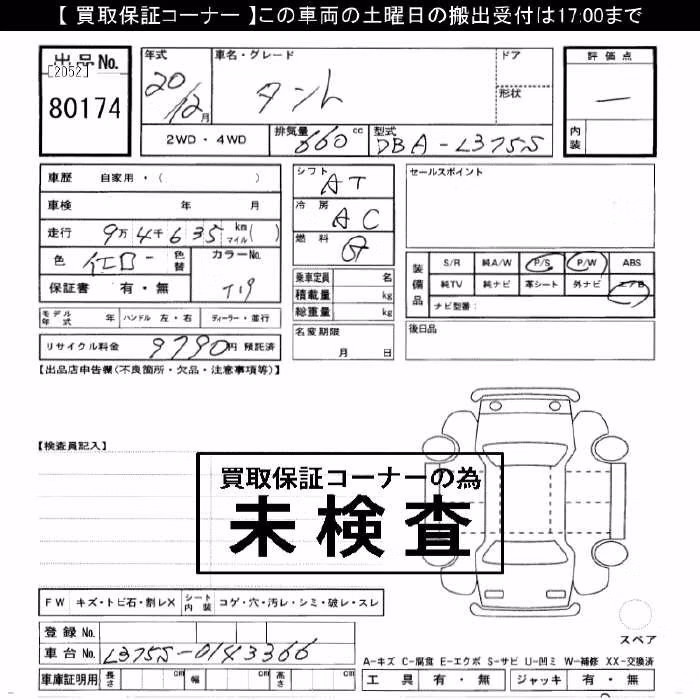 【 買取保証コーナー 】この車両の土曜日の搬出受付は17:00まで
出品No.
[2052]
80174
年式
20/12月
車名・グレード
タント
ドア
形状
評価点
―
内装
2WD・4WD
排気量 660 cc
型式 DBA-L375S
車歴 自家用・( )
車検 年 月
走行 9万4千635 km マイル( )
色
色替
カラーNo.
T19
保証書 有・無
シフト AT
冷房 AC
燃料
乗車定員 名
積載量 kg
総重量 kg
セールスポイント
装備品
S/R 純A/W P/S P/W ABS
純TV 純ナビ 革シート 外ナビ エアB
ナビ型番:
モデル年式 年 ハンドル 左・右 ディーラー・並行
名変期限
月 日
後日品
リサイクル料金 9790円 預託済
【出品店申告欄(不良箇所・欠品・注意事項等)】
【検査員記入】
買取保証コーナーの為
未検査
FW キズ・トビ石・割レX シート内装 コゲ・穴・汚レ・シミ・破レ・スレ
スペア
登録No.
車台No. L375S-0143366
A-キズ C-腐食 E-エクボ S-サビ U-凹ミ W-補修 XX-交換済
車庫証明用 長さ cm 幅 cm 高さ cm
工具 有・無 ジャッキ 有・無